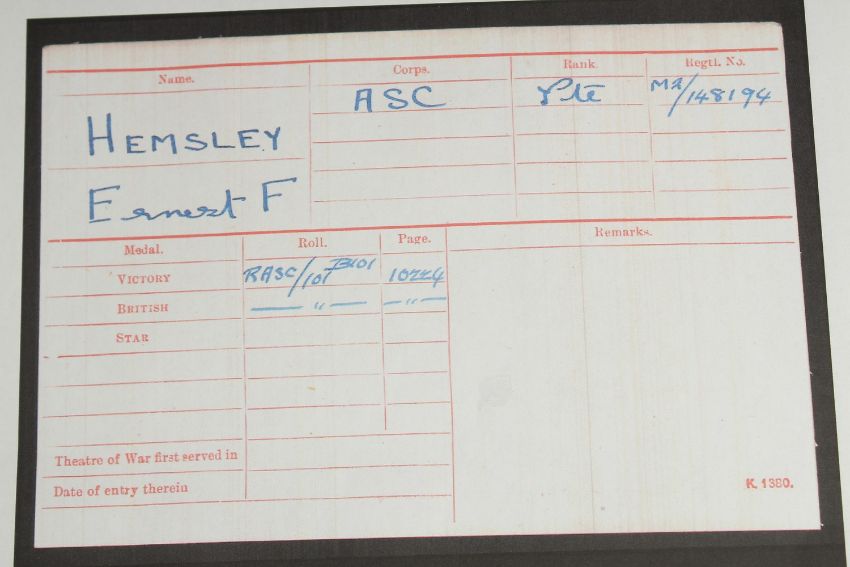 Name. Corps. Rank. Regtl. No.
HEMSLEY ASC Pte M2/148194
Ernest F
Medal. Roll. Page. Remarks.
VICTORY RASC/101 B101 10224
BRITISH — " — — " —
STAR
Theatre of War first served in
Date of entry therein
K. 1380.